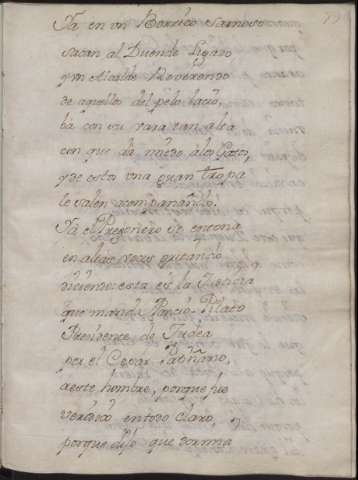 Ya en un Borrico famoso
sacan al Duende ligado
y un Alcalde Reverendo
de aquellos del pelo lacio,
ba con su vara tan alta
con que da miedo a los Gatos,
y de estos una gran tropa
le valen acompañando.
Ya el Pregonero se entona
en altas voces gritando
diciendo: esta es la Justicia
que manda Poncio Pilato
Presidente de Judea
por el Cesar Rom̃no,
a este hombre, porque fue
veridico en todo claro, y
porque dijo que dormia